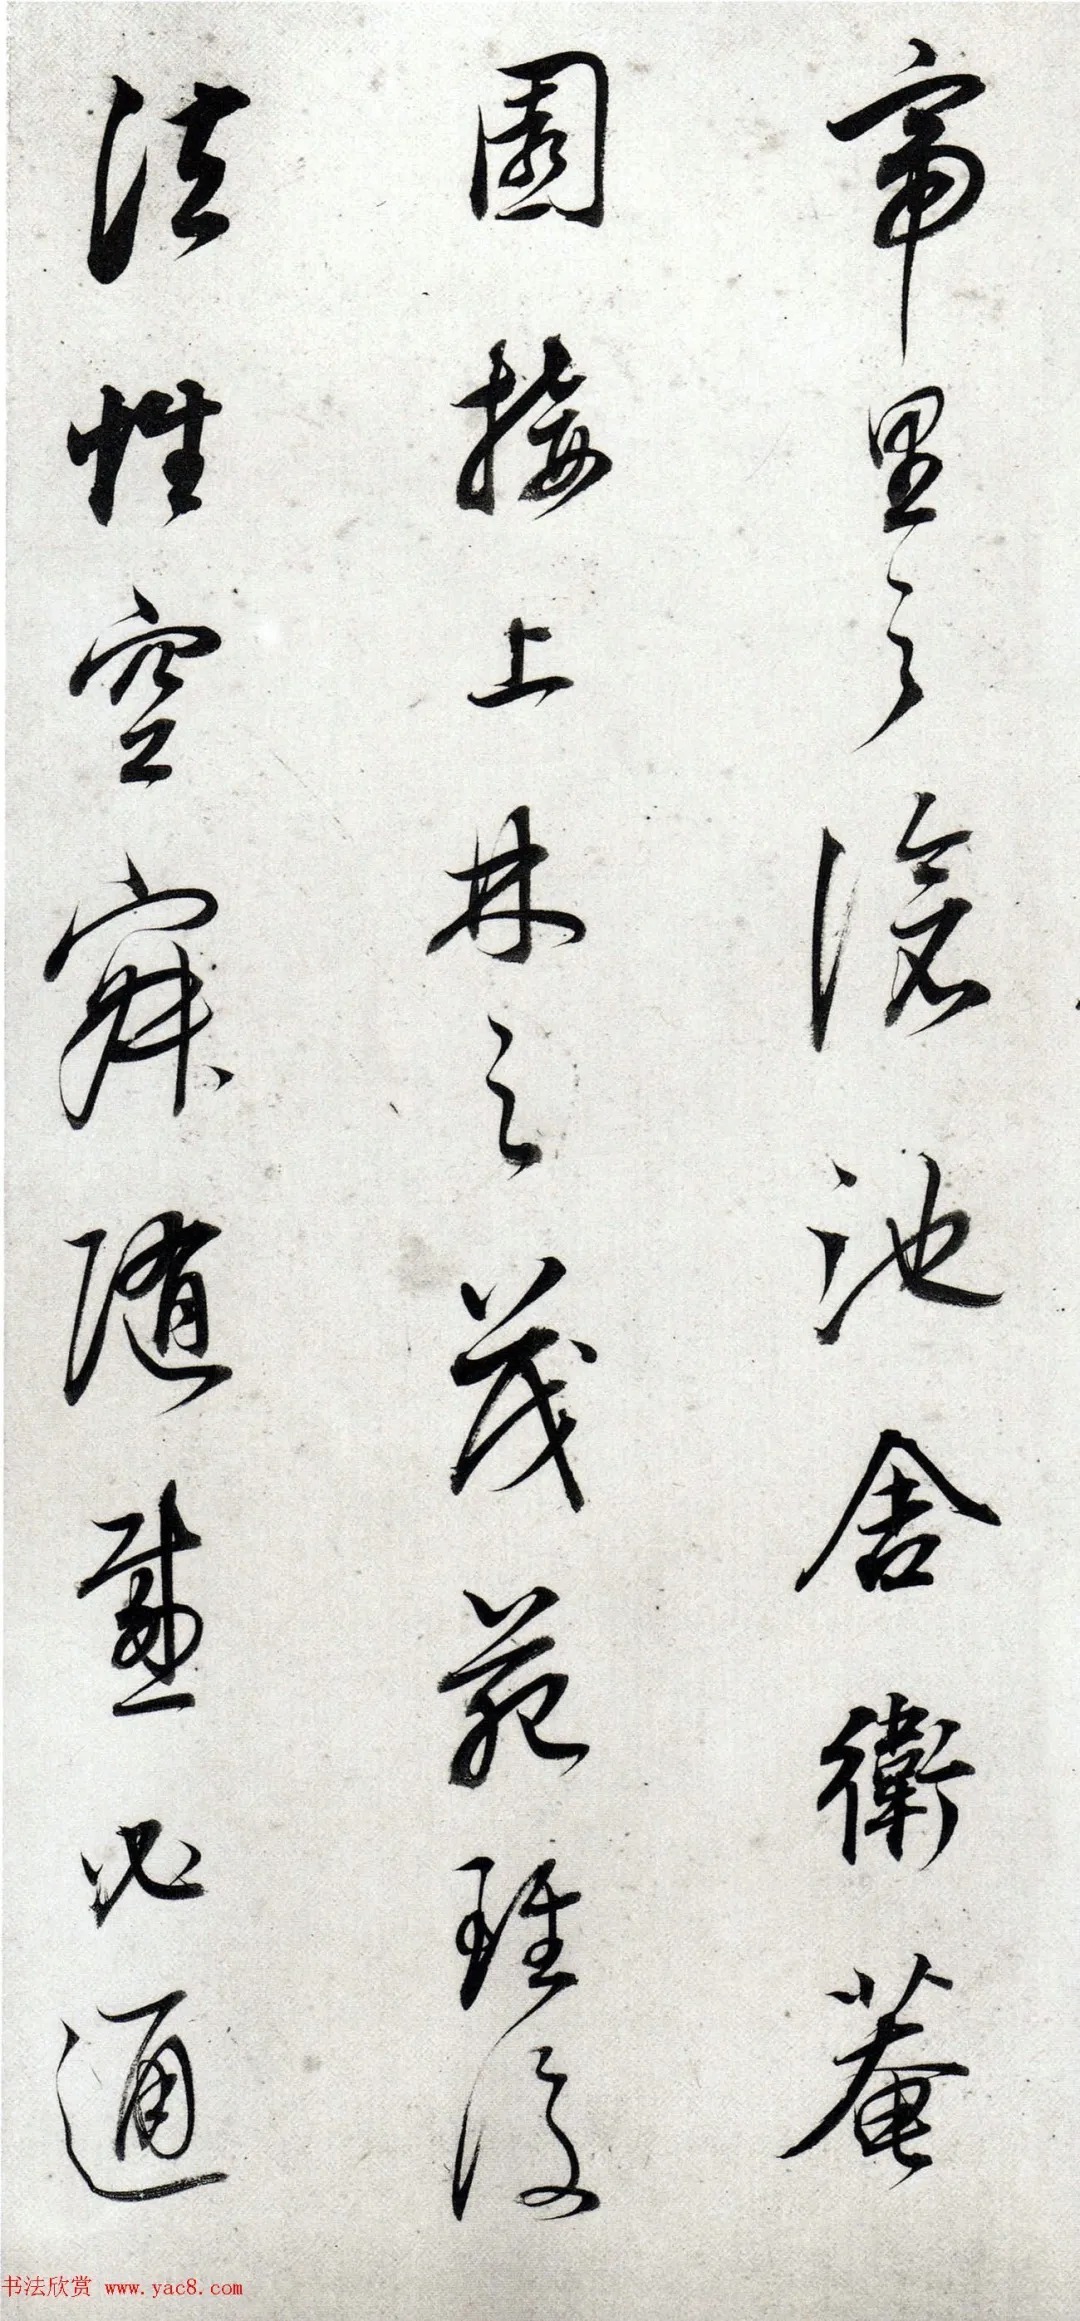 帝里之滄池舍衛菴
園接上林之茂苑雖復
法性空寂隨感必通
书法欣赏 www.yac8.com